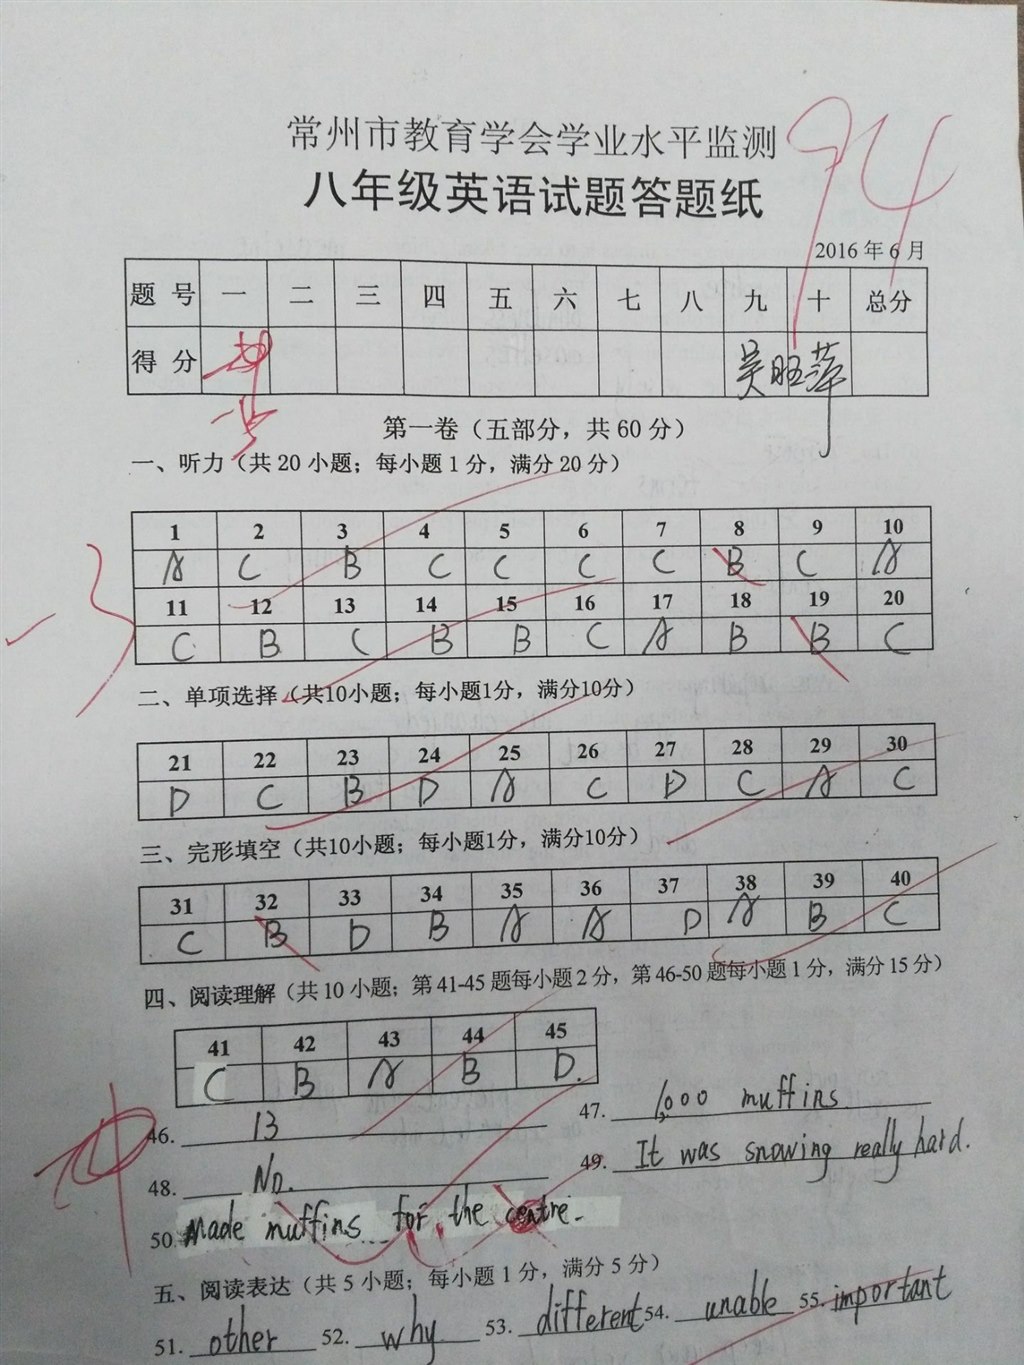 常州市教育学会学业水平监测
94
八年级英语试题答题纸
2016年6月
题 号 一 二 三 四 五 六 七 八 九 十 总分
得 分
第一卷（五部分，共 60 分）
一、听力（共 20 小题；每小题 1 分，满分 20 分）
1 2 3 4 5 6 7 8 9 10
A C B C C C C B C A
11 12 13 14 15 16 17 18 19 20
C B C B B C A B B C
二、单项选择（共10小题；每小题1分，满分10分）
21 22 23 24 25 26 27 28 29 30
D C B D A C D C A C
三、完形填空（共10小题；每小题1分，满分10分）
31 32 33 34 35 36 37 38 39 40
C B D B A A D A B C
四、阅读理解（共 10 小题；第 41-45 题每小题 2 分，第 46-50 题每小题 1 分，满分 15 分）
41 42 43 44 45
C B A B D.
46. 13 47. 1,000 muffins.
48. No. 49. It was snowing really hard.
50. Made muffins for the centre.
五、阅读表达（共 5 小题；每小题 1 分，满分 5 分）
51. other 52. why 53. different 54. unable 55. important